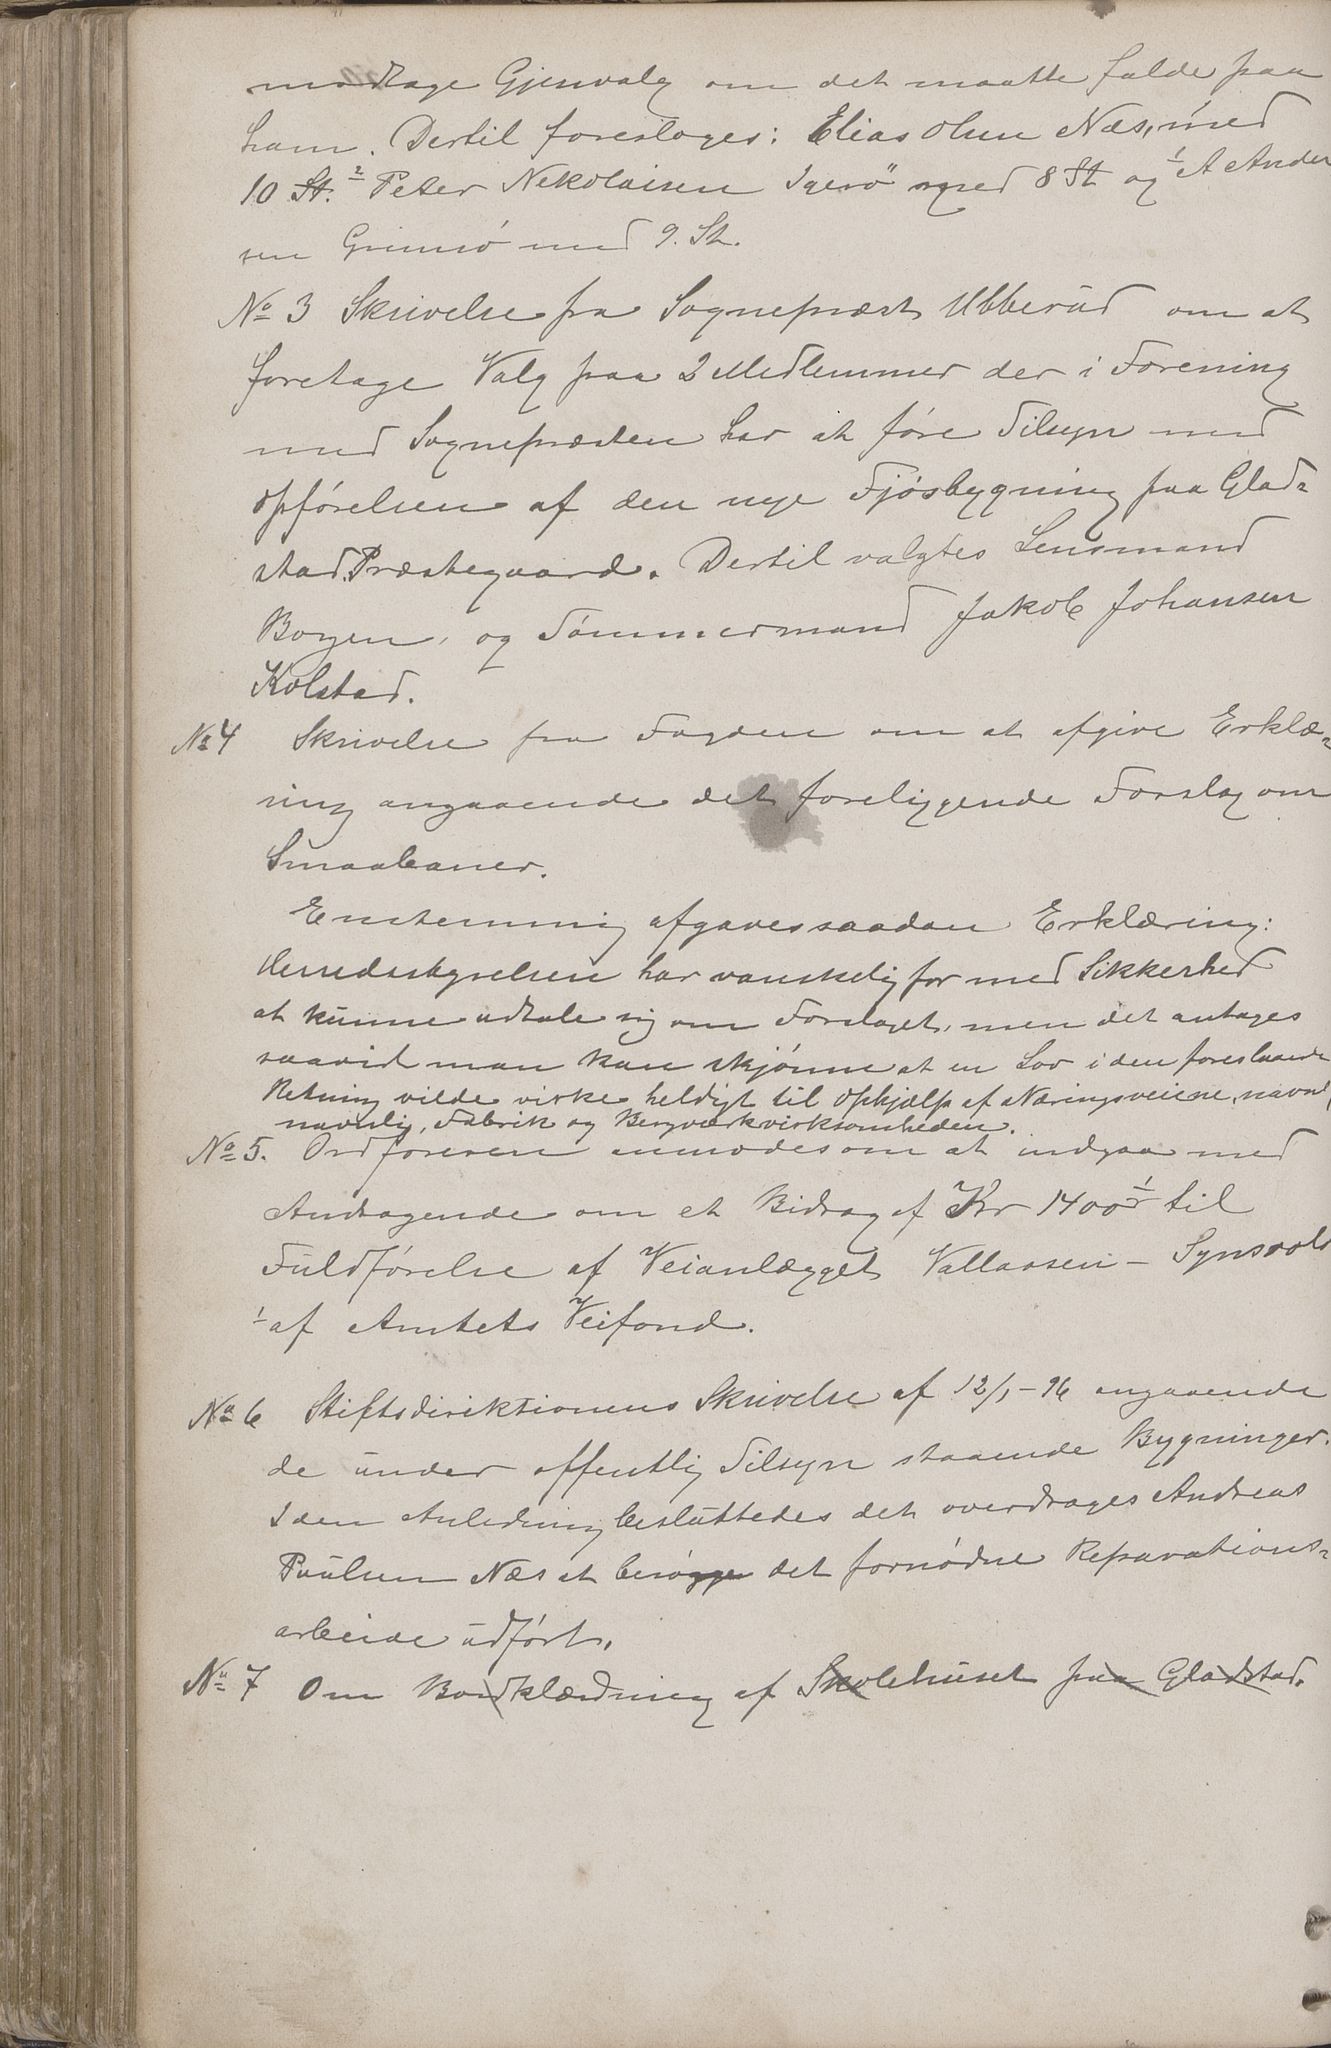 modtage Gjenvalg om det maatte falde paa
ham. Dertil foresloges: Elias Olsen Næs, med
10 St. 2 Peter Nekolaisen Igerö med 8 St og 1 A Ander
sen Grimsö med 9. St.
No 3 Skrivelse fra Sogneprest Ubberud om at
foretage Valg paa 2 Medlemmer der i Forening
med Sognepræsten har at føre Tilsyn med
Opførelsen af den nye Fjösbygning paa Glad-
stad Præstegaard. Dertil valgtes Lensmand
Boyen, og Tømmermand Jakob Johansen
Kolstad.
No 4 Skrivelse fra Fogden om at afgive Erklæ-
ring angaaende det foreliggende Forslag om
Smaabaner.
Enstemmig afgaves saadan Erklæring:
Herredsstyrelsen har vanskelig for med Sikkerhed
at kunne udtale sig om Forslaget, men det antages
saavidt man kan skjønne at en Lov i den foreslaaede
Retning vilde virke heldigt til Ophjælp af Næringsveiene, navnl
navnlig, Fabrik og Bergværkvirksomheden.
No 5. Ordføreren anmodes om at indgaa med
Andragende om et Bidrag af Kr 1400 til
Fuldførelse af Veianlægget Vallaasen - Synsvold
af Amtets Veifond.
No 6 Stiftsdirektionens Skrivelse af 12/1-96 angaaende
de under offentlig Tilsyn staaende Bygninger.
I den Anledning besluttedes det overdrages Andreas
Paulsen Næs at besørge det fornødne Reparations-
arbeide udført.
No 7 Om Bordklædning af Skolehuset paa Gladstad.